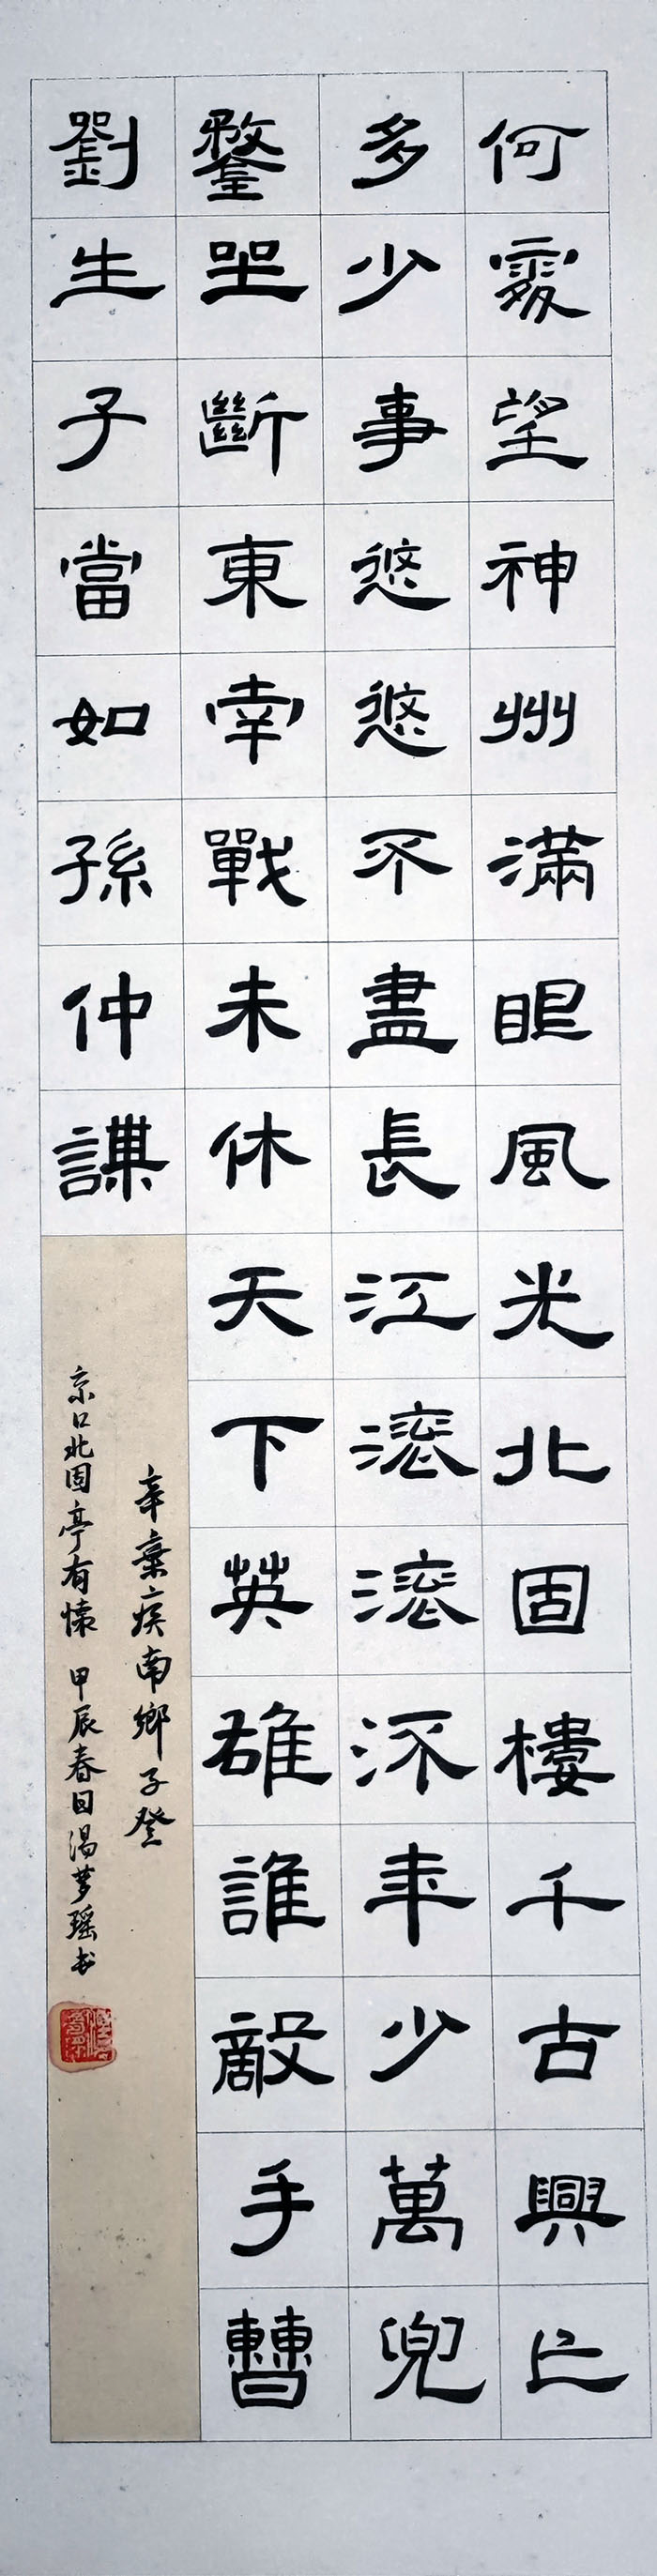 何處望神州滿眼風光北固樓千古興亡
多少事悠悠不盡長江滾滾流年少萬兜
鍪坐斷東南戰未休天下英雄誰敵手曹
劉生子當如孫仲謀
辛棄疾南鄉子登
京口北固亭有懷 甲辰春日湯夢瑶书